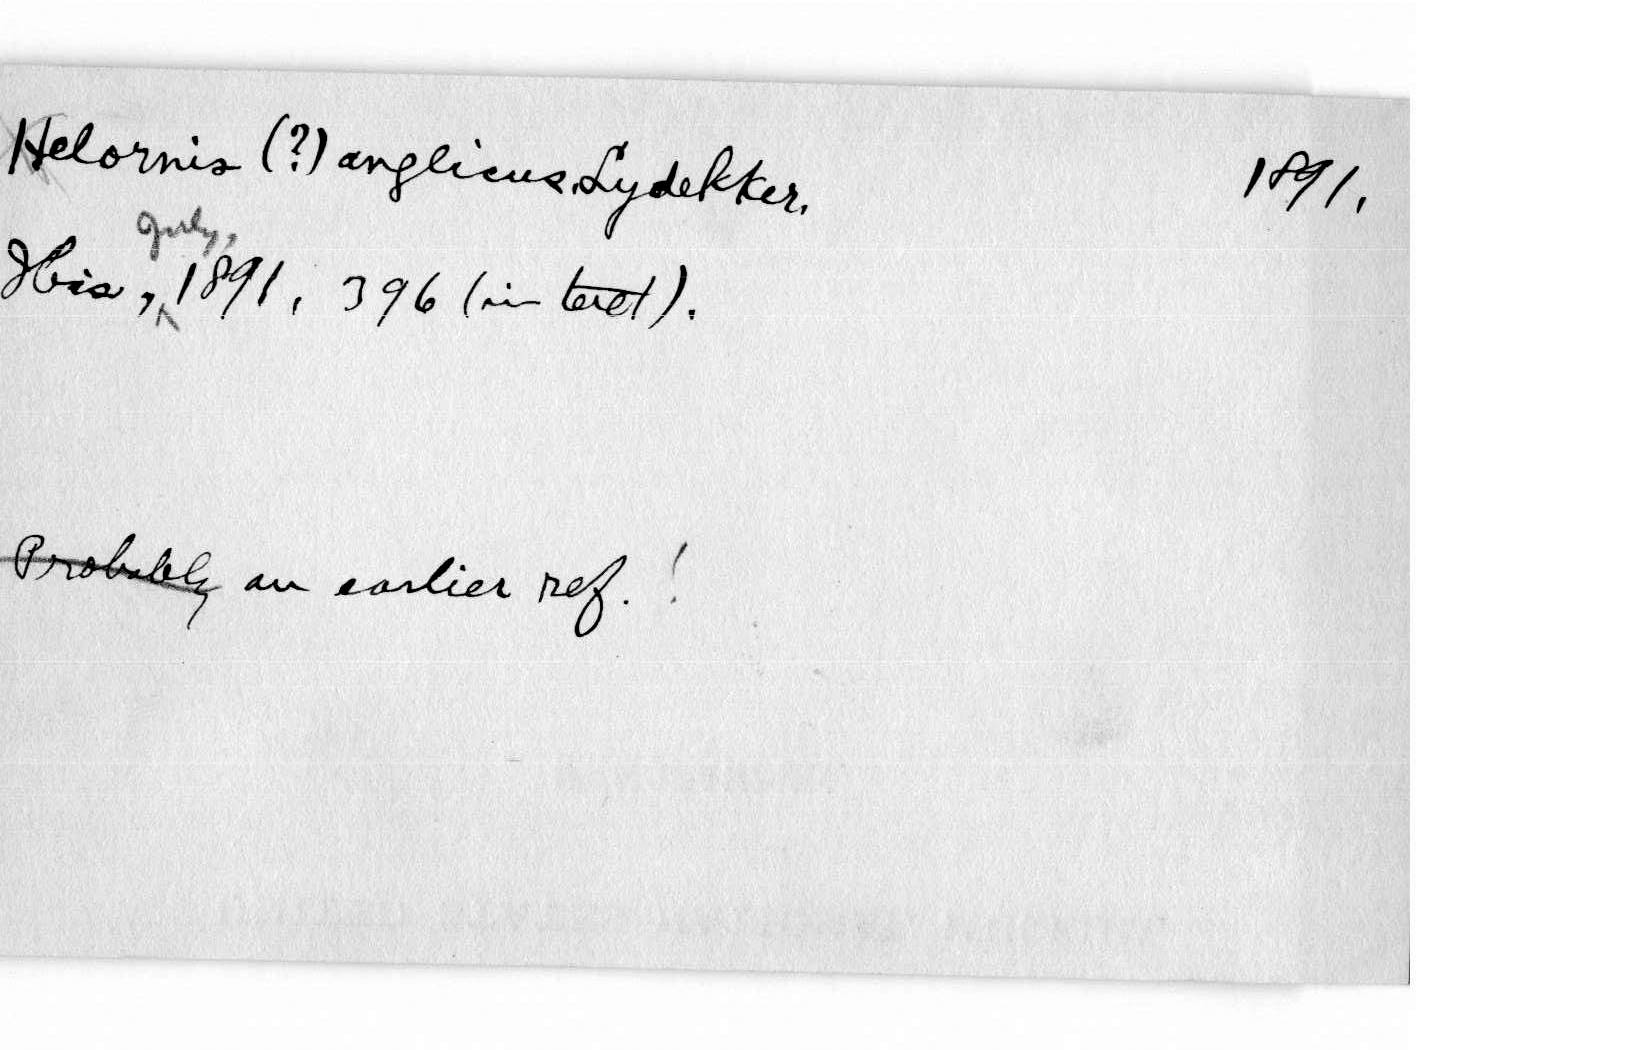 Helornis (?) anglicus, Lydekker. 1891.
July,
Ibis, 1891, 396 (in text).
Probably an earlier ref. !